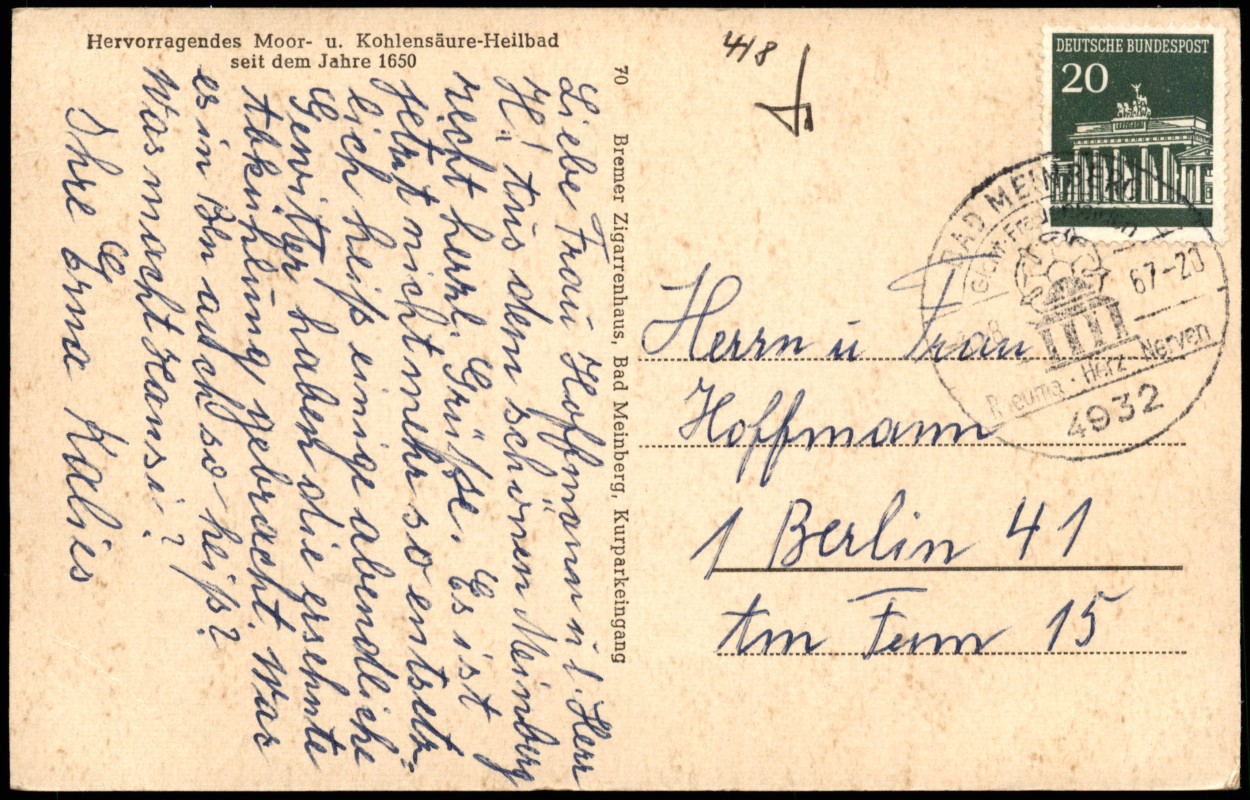 Hervorragendes Moor- u. Kohlensäure-Heilbad
seit dem Jahre 1650
Liebe Frau Hoffmann u l. Herr
H.! Aus dem schönen Meinberg
recht herzl. Grüße. Es ist
jetzt nicht mehr so entsetz-
lich heiß einige abendliche
Gewitter haben die ersehnte
Abkühlung gebracht. War
es in Bln auch so heiß?
Was macht Hansi?
Ihre Erna Kalies
70 Bremer Zigarrenhaus, Bad Meinberg, Kurparkeingang
418
DEUTSCHE BUNDESPOST
20
BAD MEINBERG
67-20
Rheuma - Herz - Nerven
4932
Herrn u Frau
Hoffmann
1 Berlin 41
Am Fenn 15